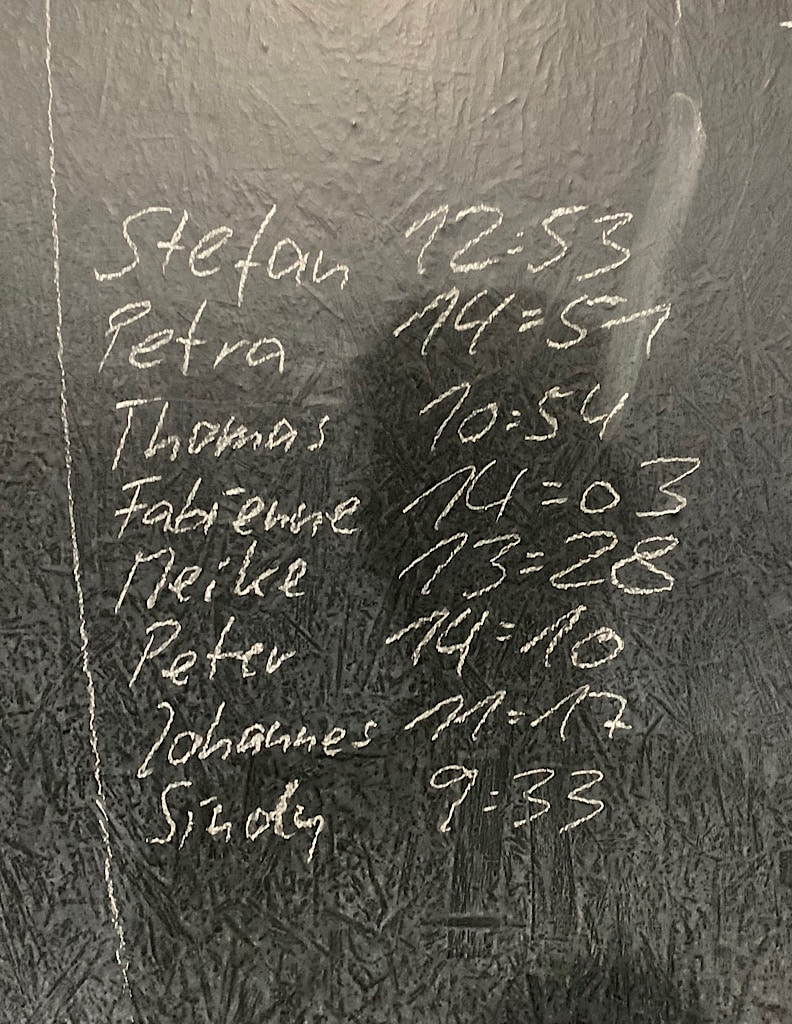 Stefan 12:53
Petra 14:51
Thomas 10:54
Fabienne 14:03
Meike 13:28
Peter 14:10
Johannes 11:17
Sindy 9:33